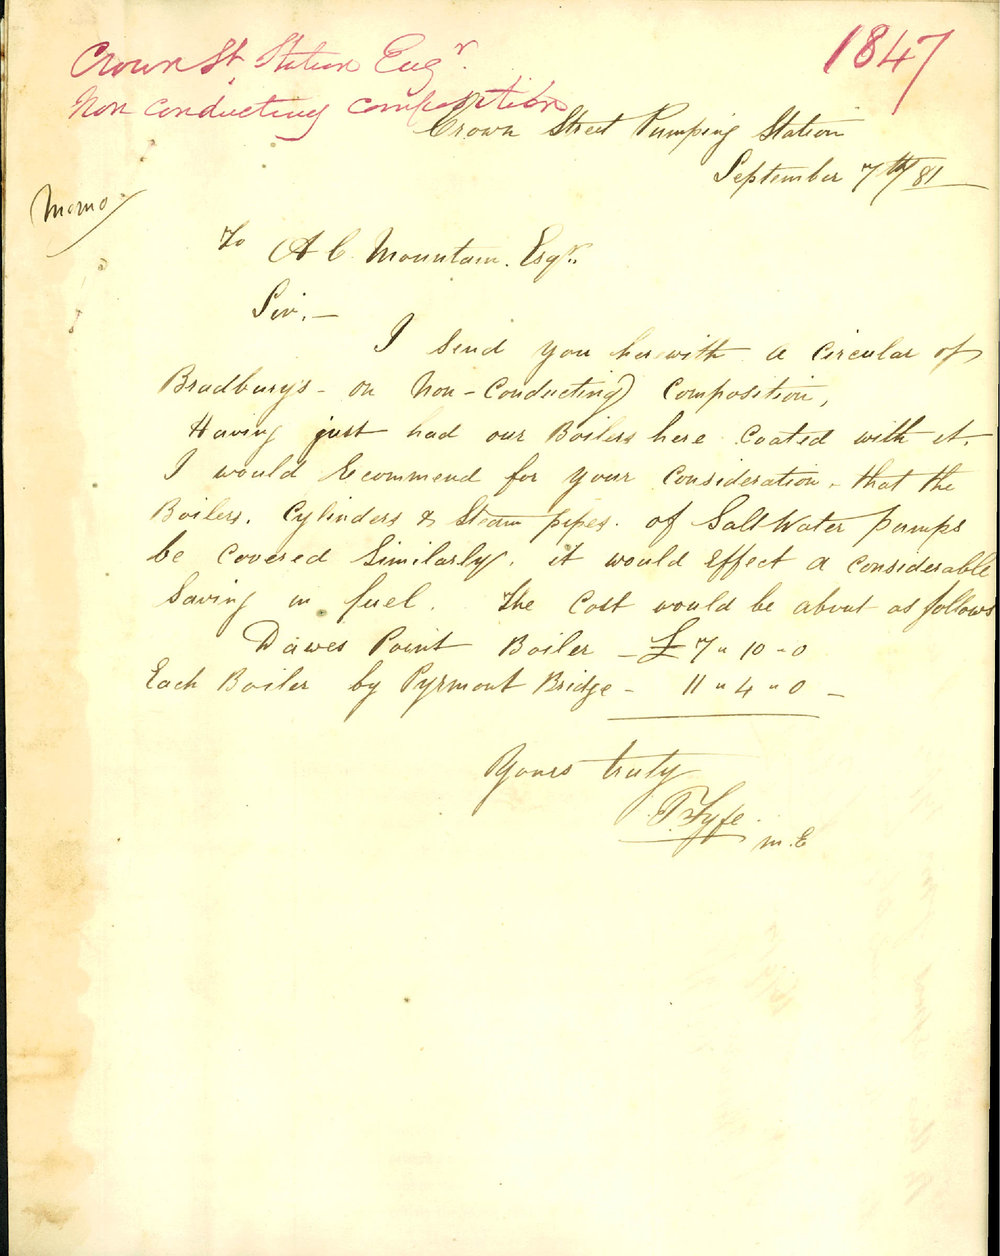 Crown St. Station Engr.
1847
Non conducting composition
Crown Street Pumping Station
September 7th/81
Memo
To A C Mountain. Esqr.
Sir,—
I send you herewith a Circular of
Bradbury's - on Non-Conducting Composition,
Having just had our Boilers here Coated with it.
I would Recommend for your Consideration, that the
Boilers, Cylinders & Steam pipes. of Salt Water pumps
be Covered Similarly. it would Effect a Considerable
Saving in fuel. The Cost would be about as follows
Dawes Point Boiler - £7 " 10 - 0
Each Boiler by Pyrmont Bridge - 11 " 4 " 0 -
Yours truly
T. Fyfe.
M.E